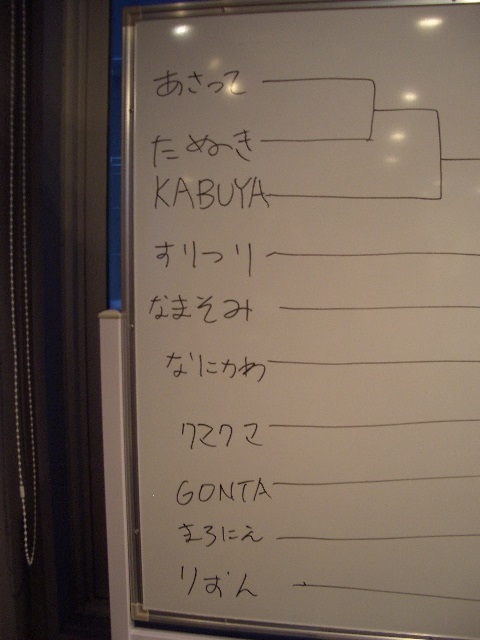 あさって
たぬき
KABUYA
すりつり
なまそみ
なにかわ
クマクマ
GONTA
まろにえ
りおん